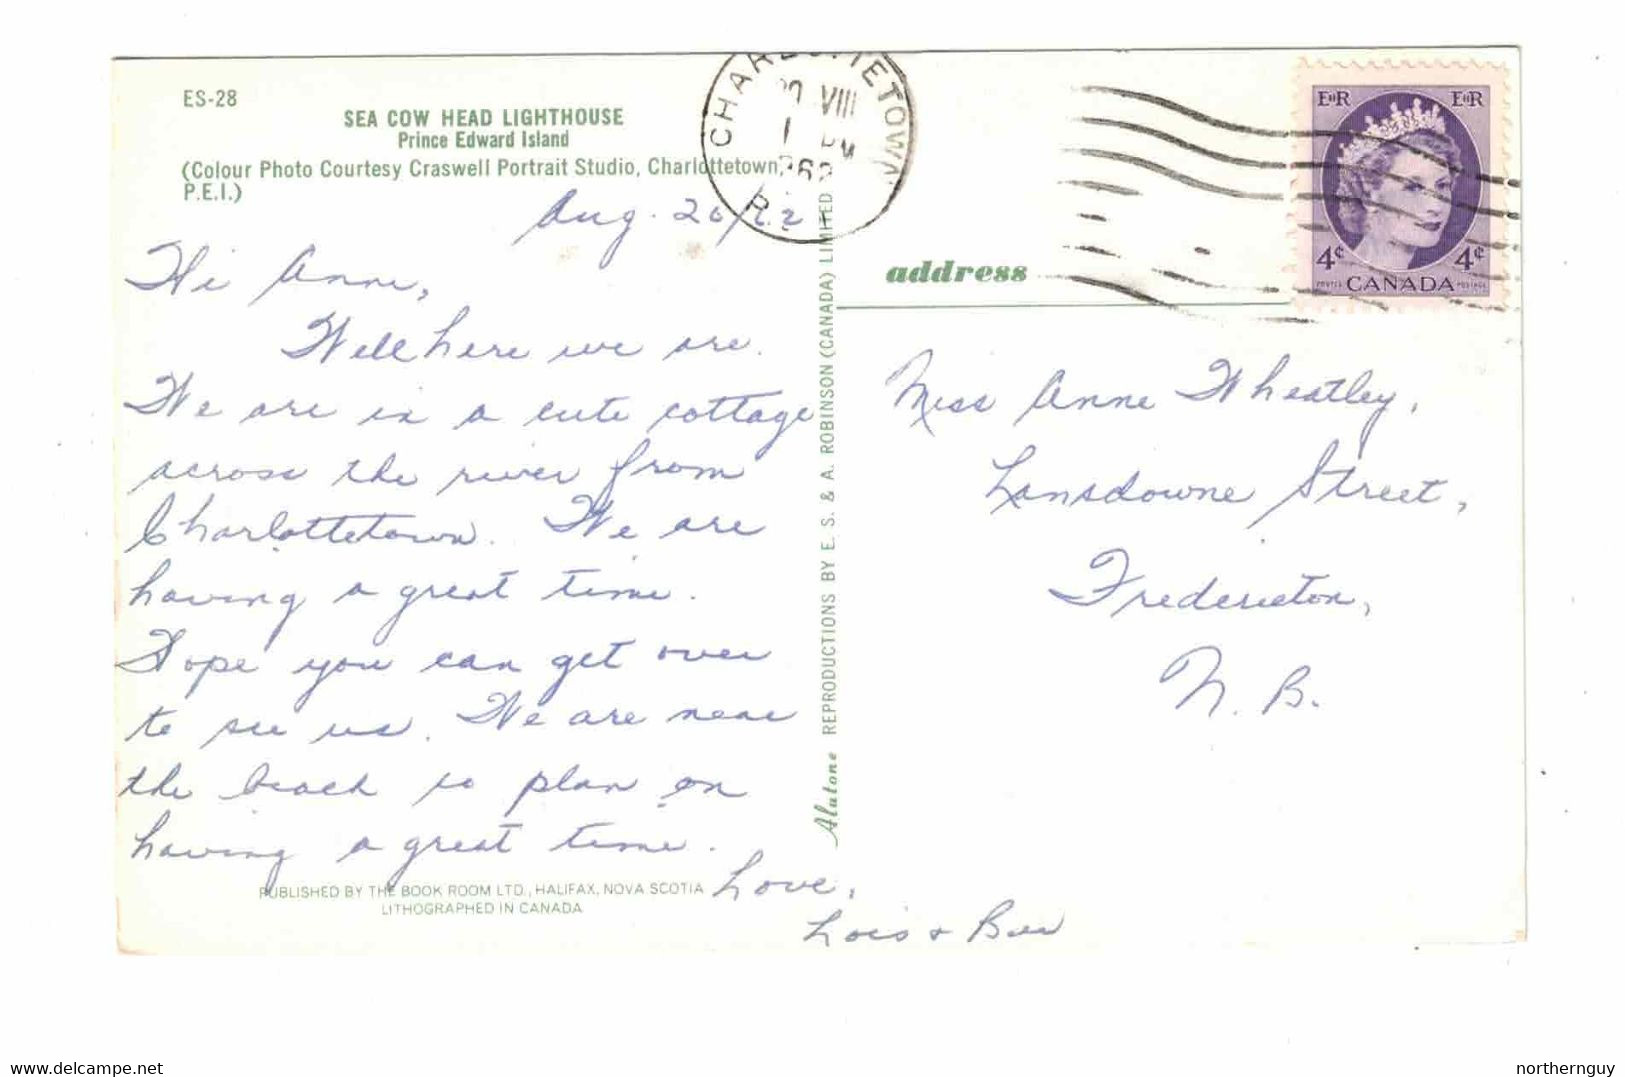 ES-28
SEA COW HEAD LIGHTHOUSE
Prince Edward Island
(Colour Photo Courtesy Craswell Portrait Studio, Charlottetown,
P.E.I.)
Aug. 20/62
Hi Anne,
Well here we are.
We are in a cute cottage
across the river from
Charlottetown. We are
having a great time.
Hope you can get over
to see us. We are near
the beach so plan on
having a great time.
Love,
Lois + Bill
PUBLISHED BY THE BOOK ROOM LTD., HALIFAX, NOVA SCOTIA
LITHOGRAPHED IN CANADA
Alutone REPRODUCTIONS BY E. S. & A. ROBINSON (CANADA) LIMITED
CHARLOTTETOWN
VIII
PM
address
E II R E II R
4¢ 4¢
POSTES CANADA POSTAGE
Miss Anne Wheatley,
Lansdowne Street,
Fredericton,
N. B.
www.delcampe.net
northernguy